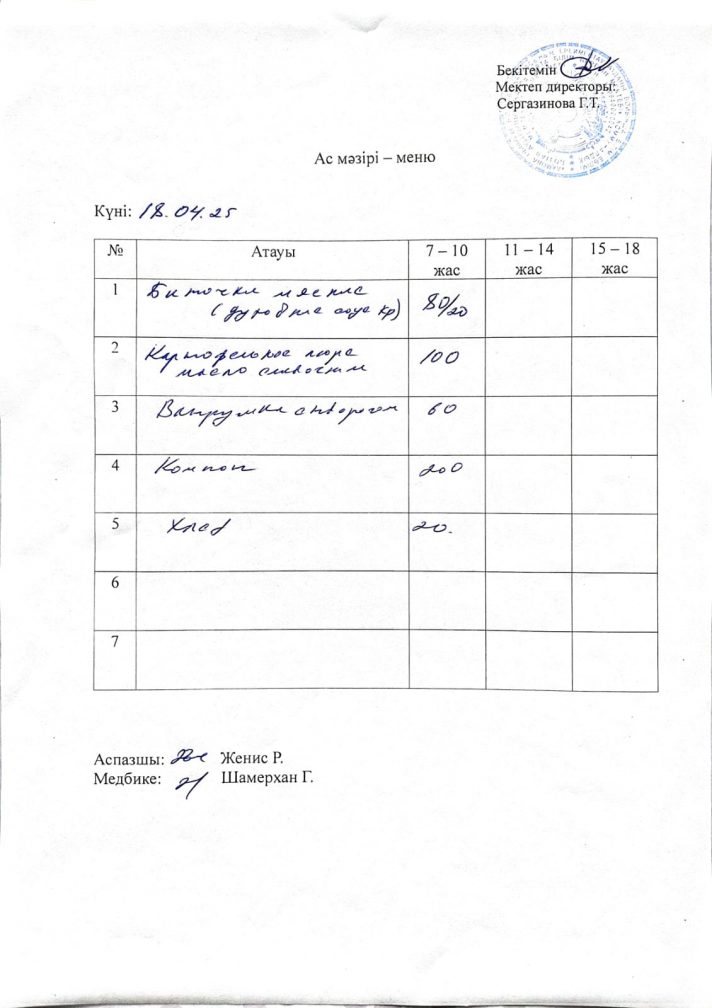 Бекітемін
Мектеп директоры:
Сергазинова Г.Т.
Ас мәзірі – меню
Күні: 18.04.25
№ Атауы 7 – 10 жас 11 – 14 жас 15 – 18 жас
1 Биточки мясные 80/20
2 Картофельное пюре 100
масло сливочным
3 Ватрушка с творогом 60
4 Компот 200
5 Хлеб 20.
6
7
Аспазшы: Женис Р.
Медбике: Шамерхан Г.